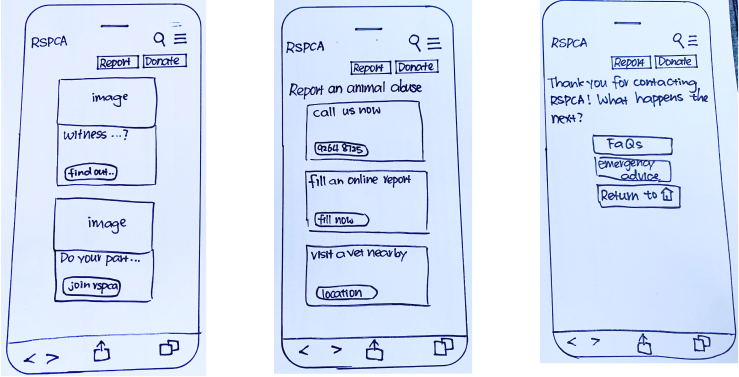 RSPCA
Report Donate
image
witness ...?
find out..
image
Do your part...
join rspca
RSPCA
Report Donate
Report an animal abuse
call us now
9264 8725
fill an online report
fill now
visit a vet nearby
location
RSPCA
Report Donate
Thank you for contacting
RSPCA! What happens the
next?
FaQs
emergency
advice
Return to